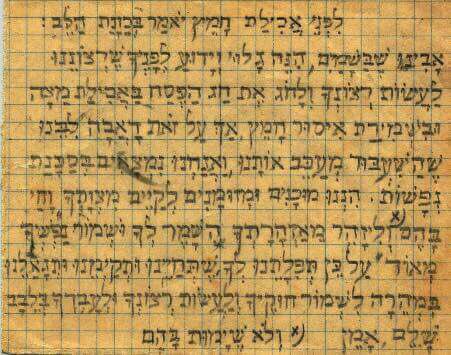 לִפְנֵי אֲכִילַת חָמֵץ יֹאמַר בְּכַוָּנַת הַלֵּב:
אָבִינוּ שֶׁבַּשָּׁמַיִם, הִנֵּה גָלוּי וְיָדוּעַ לְפָנֶיךָ שֶׁרְצוֹנֵנוּ
לַעֲשׂוֹת רְצוֹנְךָ וְלָחוֹג אֶת חַג הַפֶּסַח בַּאֲכִילַת מַצָּה
וּבִשְׁמִירַת אִיסוּר חָמֵץ, אַךְ עַל זֹאת דָּאֲבָה לִבֵּנוּ
שֶׁהַשִּׁעְבּוּד מְעַכֵּב אוֹתָנוּ, וַאֲנַחְנוּ נִמְצָאִים בְּסַכָּנַת
נְפָשׁוֹת. הִנְנוּ מוּכָנִים וּמְזוּמָנִים לְקַיֵּים מִצְוָתְךָ וָחַי
בָּהֶם x) וְלִיזָּהֵר מֵאַזְהָרָתְךָ הִשָּׁמֶר לְךָ וּשְׁמוֹר נַפְשְׁךָ
מְאוֹד. עַל כֵּן תְּפִלָּתֵנוּ לְךָ שֶׁתְּחַיֵּינוּ וּתְקַיְּמֵנוּ וְתִגְאָלֵנוּ
בִּמְהֵרָה לִשְׁמוֹר חוּקֶּיךָ וְלַעֲשׂוֹת רְצוֹנְךָ וּלְעָבְדְךָ בְּלֵבָב
שָׁלֵם, אָמֵן x) וְלֹא שֶׁיָּמוּת בָּהֶם